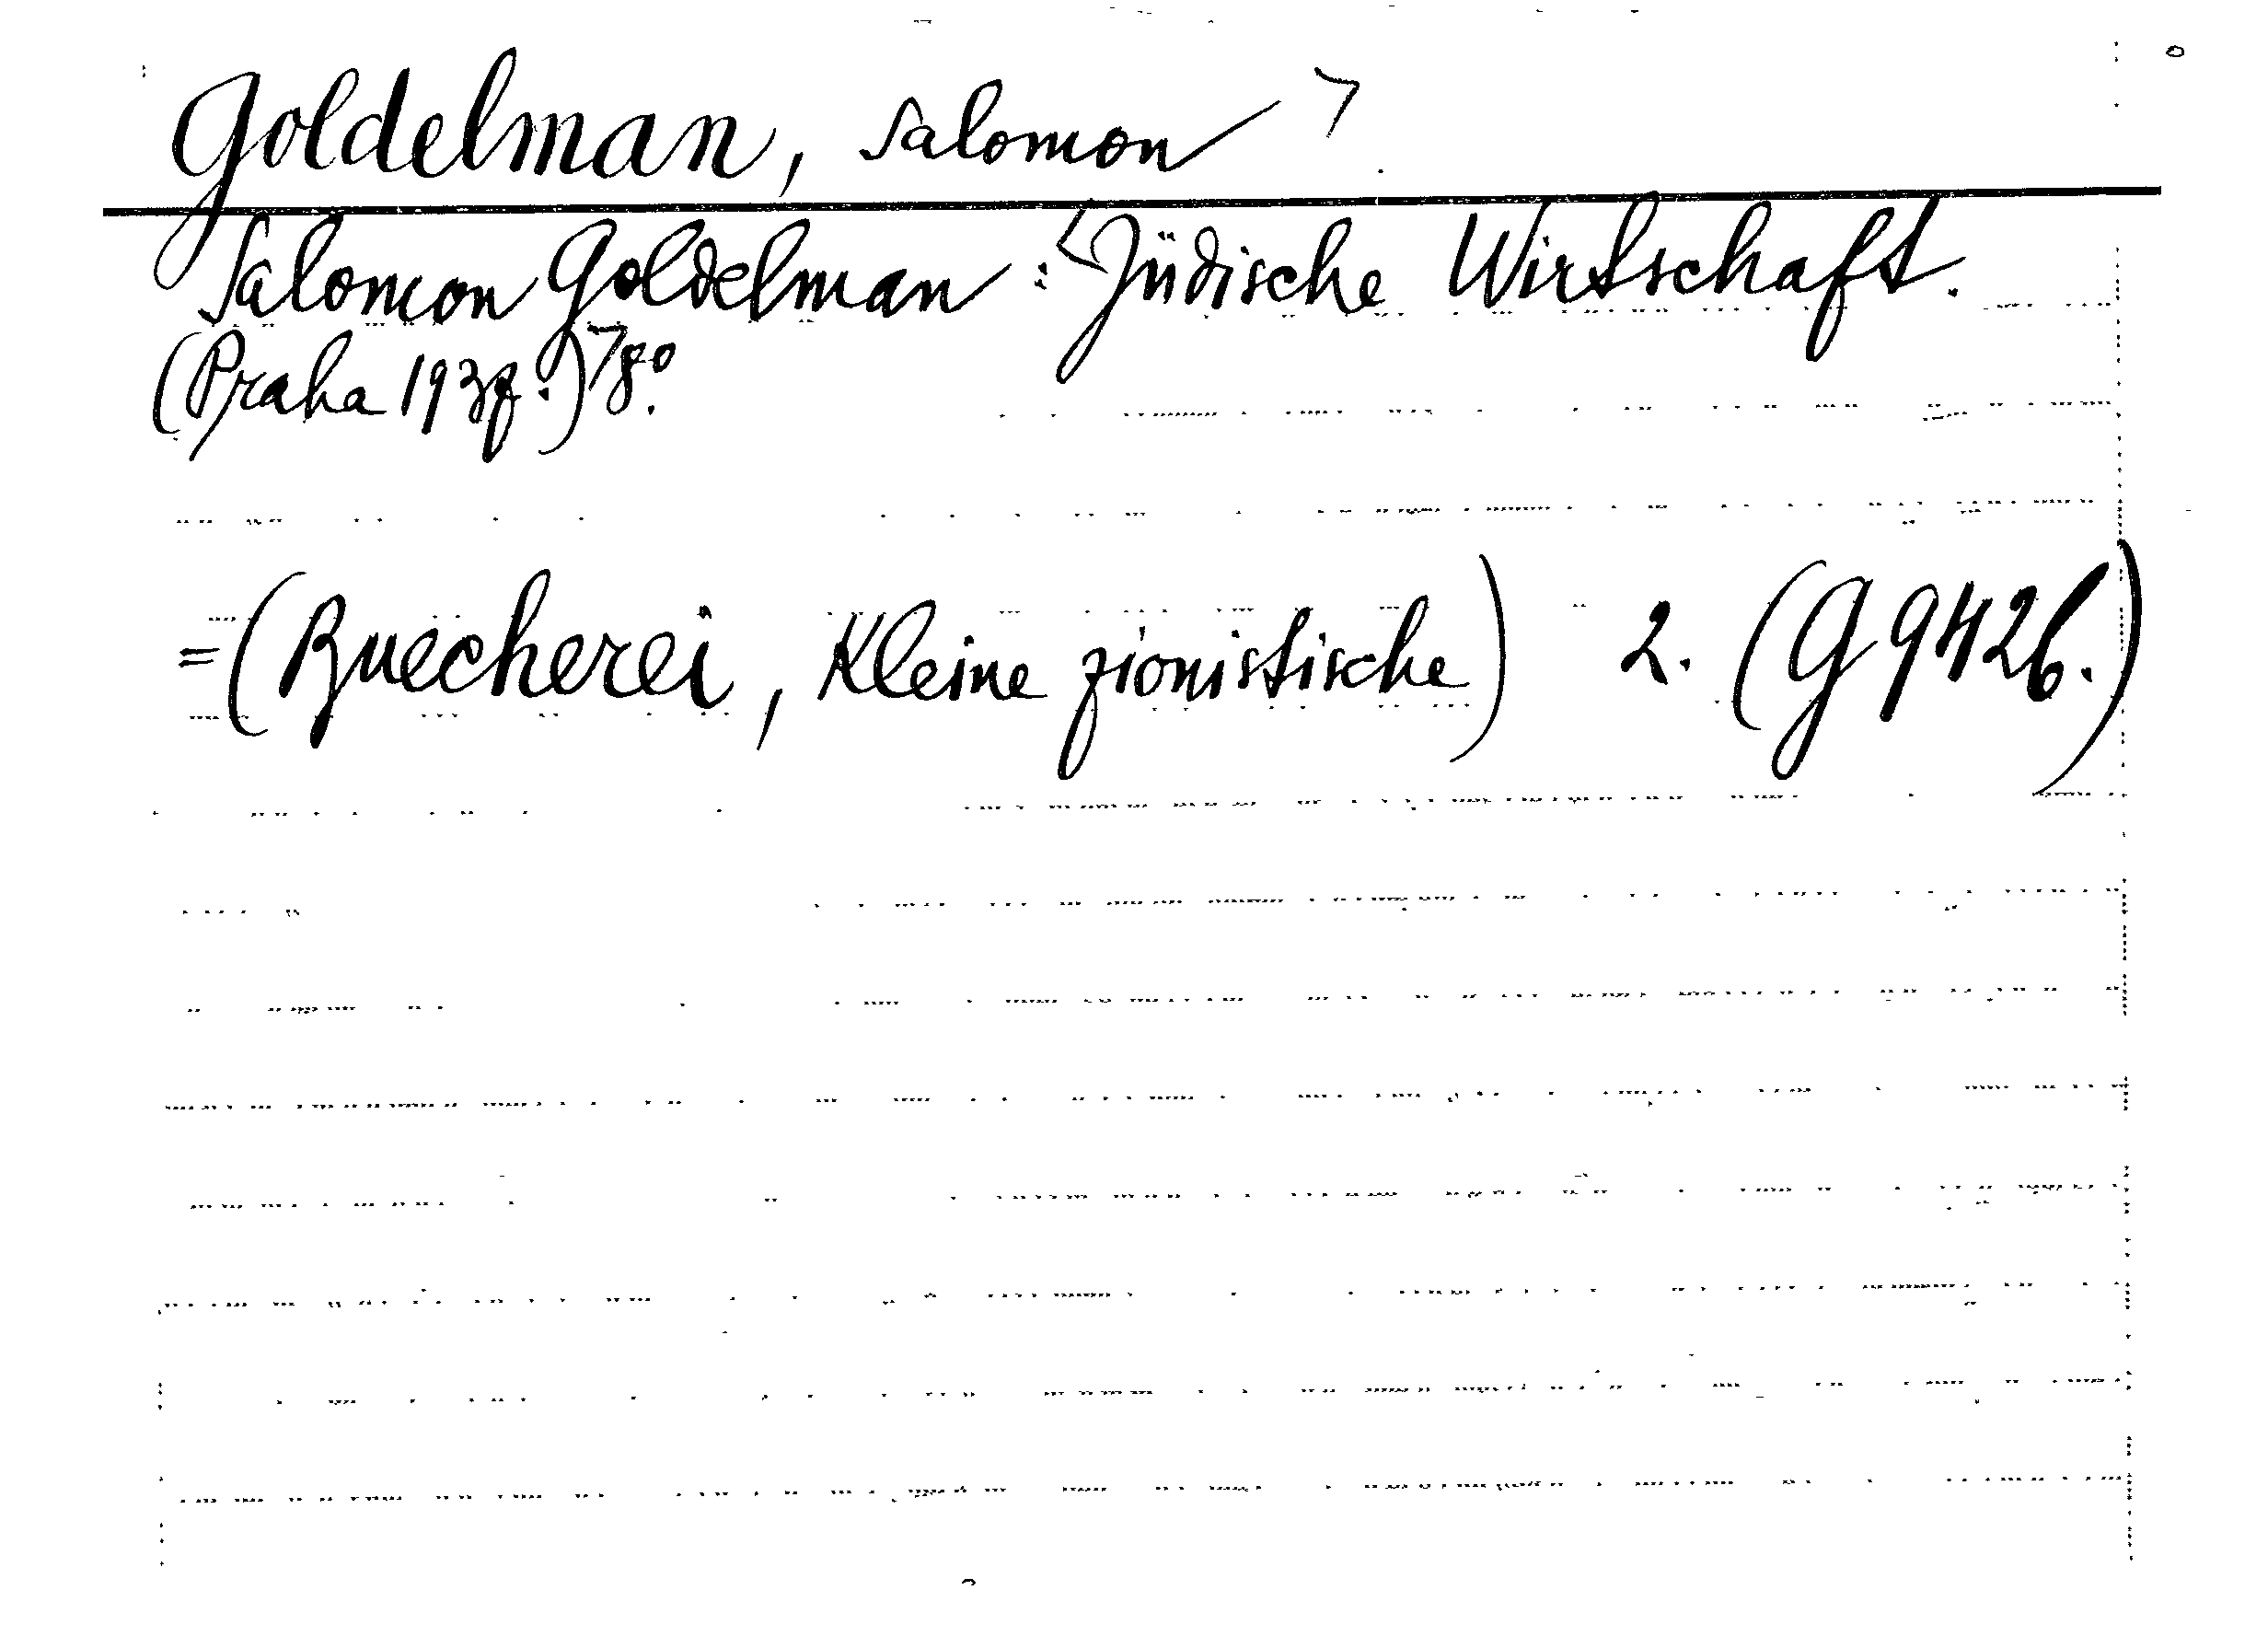 Goldelman, Salomon
Salomon Goldelman: Jüdische Wirtschaft.
(Praha 1937.) 8°.
=(Buecherei, Kleine zionistische) 2. (G 9426.)